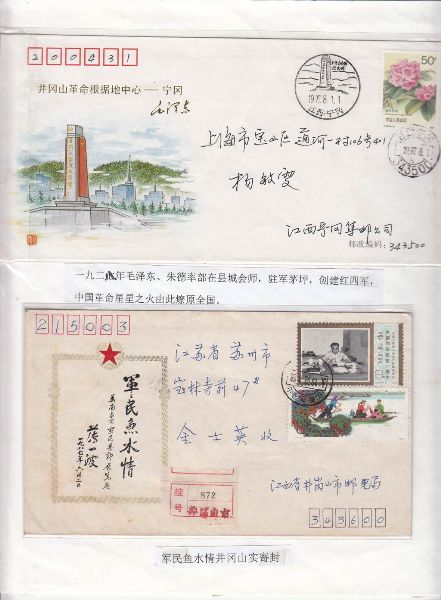 200431
井冈山革命根据地中心——宁冈
毛泽东
50分
中国人民邮政
江西·宁冈
上海市宝山区通河一村106号401
杨敏雯
江西宁冈集邮公司
邮政编码：343500
343500
一九二八年毛泽东、朱德率部在县城会师，驻军茅坪，创建红四军，
中国革命星星之火由此燎原全国。
215003
军民鱼水情
薄一波
江苏省 苏州市
宝林寺前47#
金士英 收
挂号
872
井冈山市
江西省井岗山市邮电局
343600
军民鱼水情井冈山实寄封